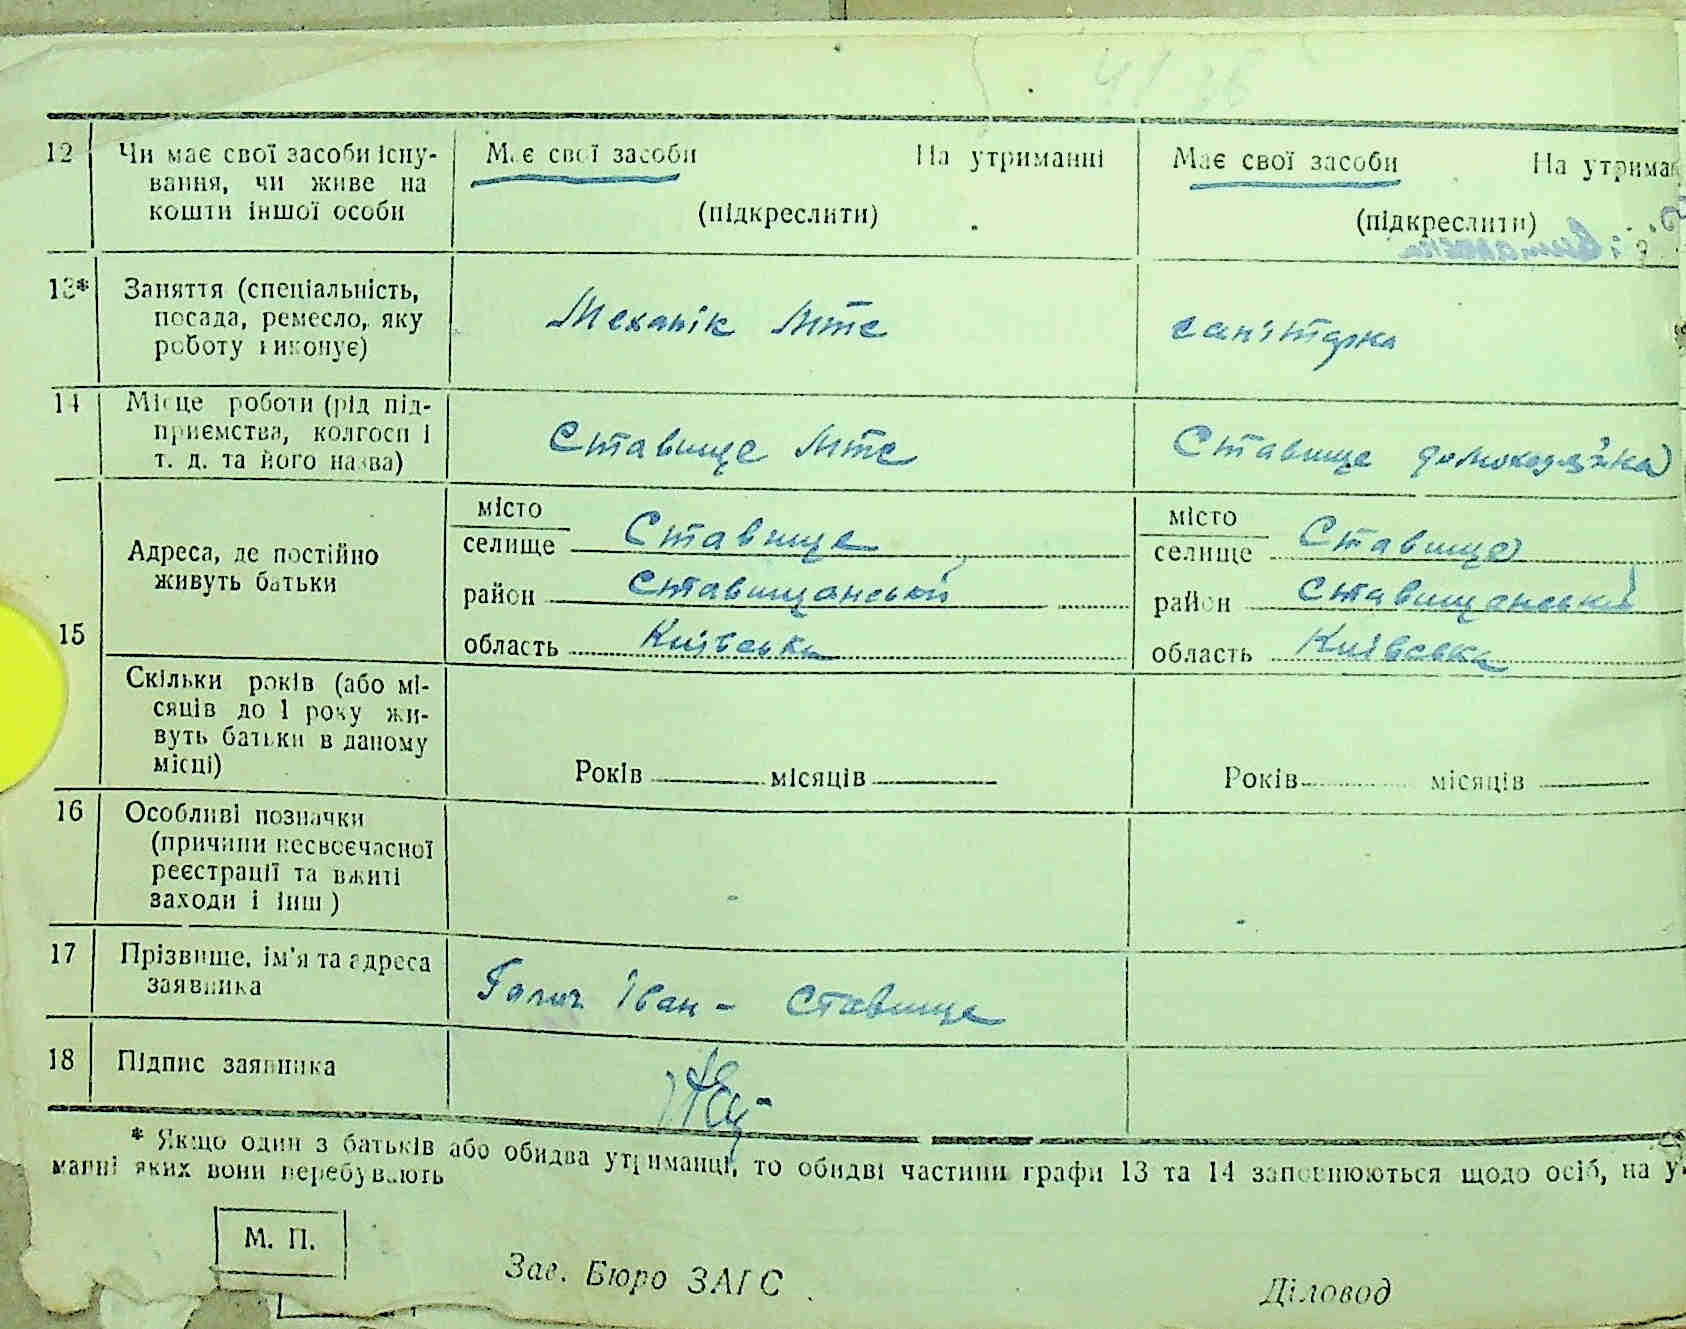 12 Чи має свої засоби існу-
вання, чи живе на
кошти іншої особи
Має свої засоби На утриманні
(підкреслити)
Має свої засоби На утриман
(підкреслити)
13* Заняття (спеціальність,
посада, ремесло, яку
роботу виконує)
Механік Мтс
санітарка
14 Місце роботи (рід під-
приємства, колгосп і
т. д. та його назва)
Ставище Мтс
Ставище
15 Адреса, де постійно
живуть батьки
місто
селище Ставище
район Ставищанський
область Київська
місто
селище Ставище
район Ставищанський
область Київська
Скільки років (або мі-
сяців до 1 року жи-
вуть батьки в даному
місці)
Років місяців
Років місяців
16 Особливі позначки
(причини несвоєчасної
реєстрації та вжиті
заходи і інш)
17 Прізвище, ім'я та адреса
заявника
Галич Іван - Ставище
18 Підпис заявника
* Якщо один з батьків або обидва утриманці, то обидві частини графи 13 та 14 заповнюються щодо осіб, на у-
манні яких вони перебувають
М. П.
Зав. Бюро ЗАГС
Діловод